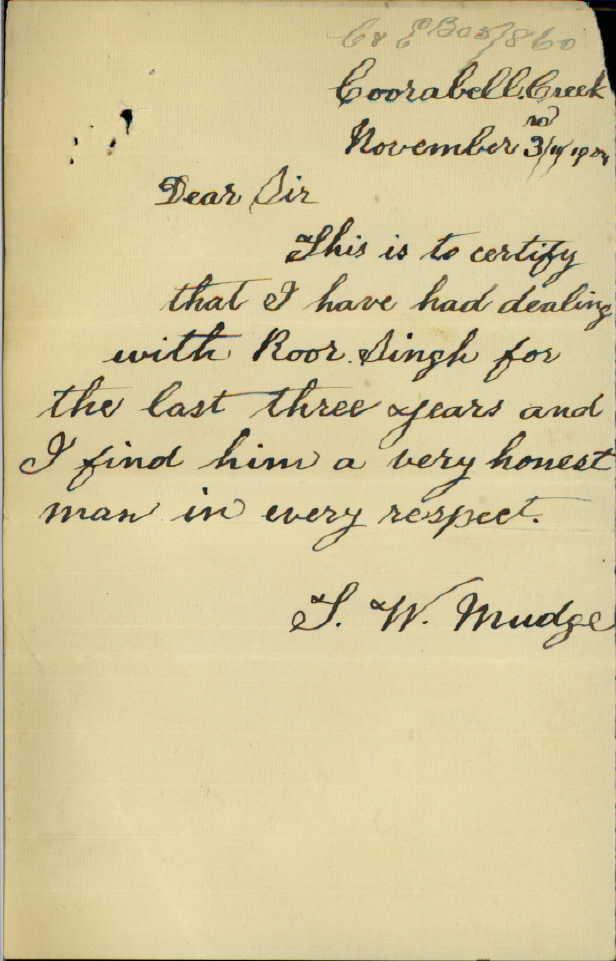 Coorabell Creek
November 3rd
Dear Sir
This is to certify
that I have had dealing
with Roor Singh for
the last three years and
I find him a very honest
man in every respect.
W. Mudge